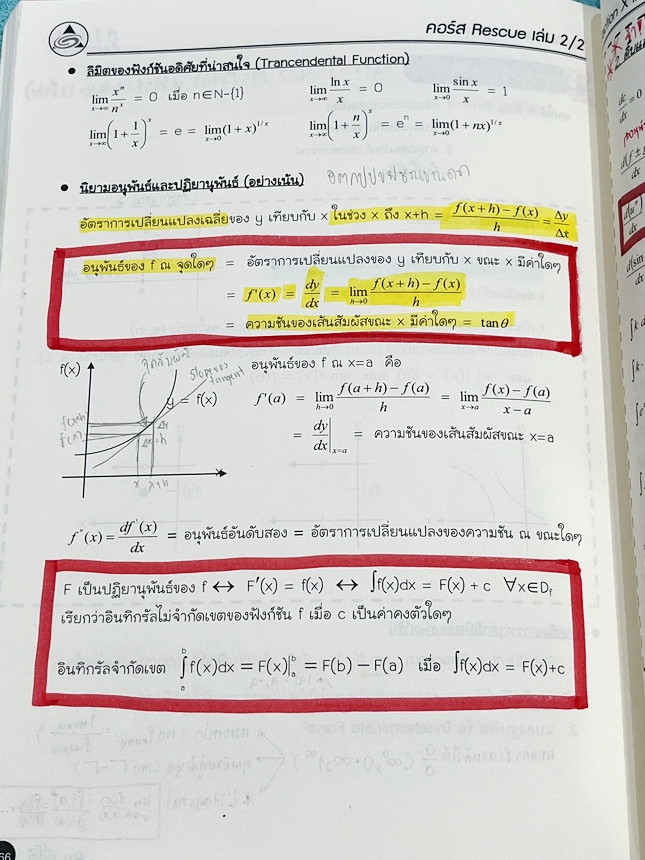 คอร์ส Rescue เล่ม 2/2
• ลิมิตของฟังก์ชันอดิศัยที่น่าสนใจ (Trancendental Function)
lim x→∞ xⁿ/nˣ = 0 เมื่อ n∈N-{1} lim x→∞ ln x/x = 0 lim x→0 sin x/x = 1
lim x→∞ (1 + 1/x)ˣ = e = lim x→0 (1 + x)^(1/x) lim x→∞ (1 + n/x)ˣ = eⁿ = lim x→0 (1 + nx)^(1/x)
• นิยามอนุพันธ์และปฏิยานุพันธ์ (อย่างเน้น)
อัตราการเปลี่ยนแปลงเฉลี่ยของ y เทียบกับ x ในช่วง x ถึง x+h = (f(x + h) − f(x))/h = Δy/Δx
อนุพันธ์ของ f ณ จุดใดๆ = อัตราการเปลี่ยนแปลงของ y เทียบกับ x ขณะ x มีค่าใดๆ
= f'(x) = dy/dx = lim h→0 (f(x + h) − f(x))/h
= ความชันของเส้นสัมผัสขณะ x มีค่าใดๆ = tan θ
f(x)
slope ของ tangent
y = f(x)
f(x+h)
f(x)
Δy
Δx = h
x x+h
x
อนุพันธ์ของ f ณ x=a คือ
f'(a) = lim h→0 (f(a + h) − f(a))/h = lim x→a (f(x) − f(a))/(x − a)
= dy/dx |x=a = ความชันของเส้นสัมผัสขณะ x=a
f"(x) = df'(x)/dx = อนุพันธ์อันดับสอง = อัตราการเปลี่ยนแปลงของความชัน ณ ขณะใดๆ
F เป็นปฏิยานุพันธ์ของ f ↔ F'(x) = f(x) ↔ ∫f(x)dx = F(x) + c ∀x∈D_f
เรียกว่าอินทิกรัลไม่จำกัดเขตของฟังก์ชัน f เมื่อ c เป็นค่าคงตัวใดๆ
อินทิกรัลจำกัดเขต ∫ₐᵇ f(x)dx = F(x)|ₐᵇ = F(b) − F(a) เมื่อ ∫f(x)dx = F(x)+c
66